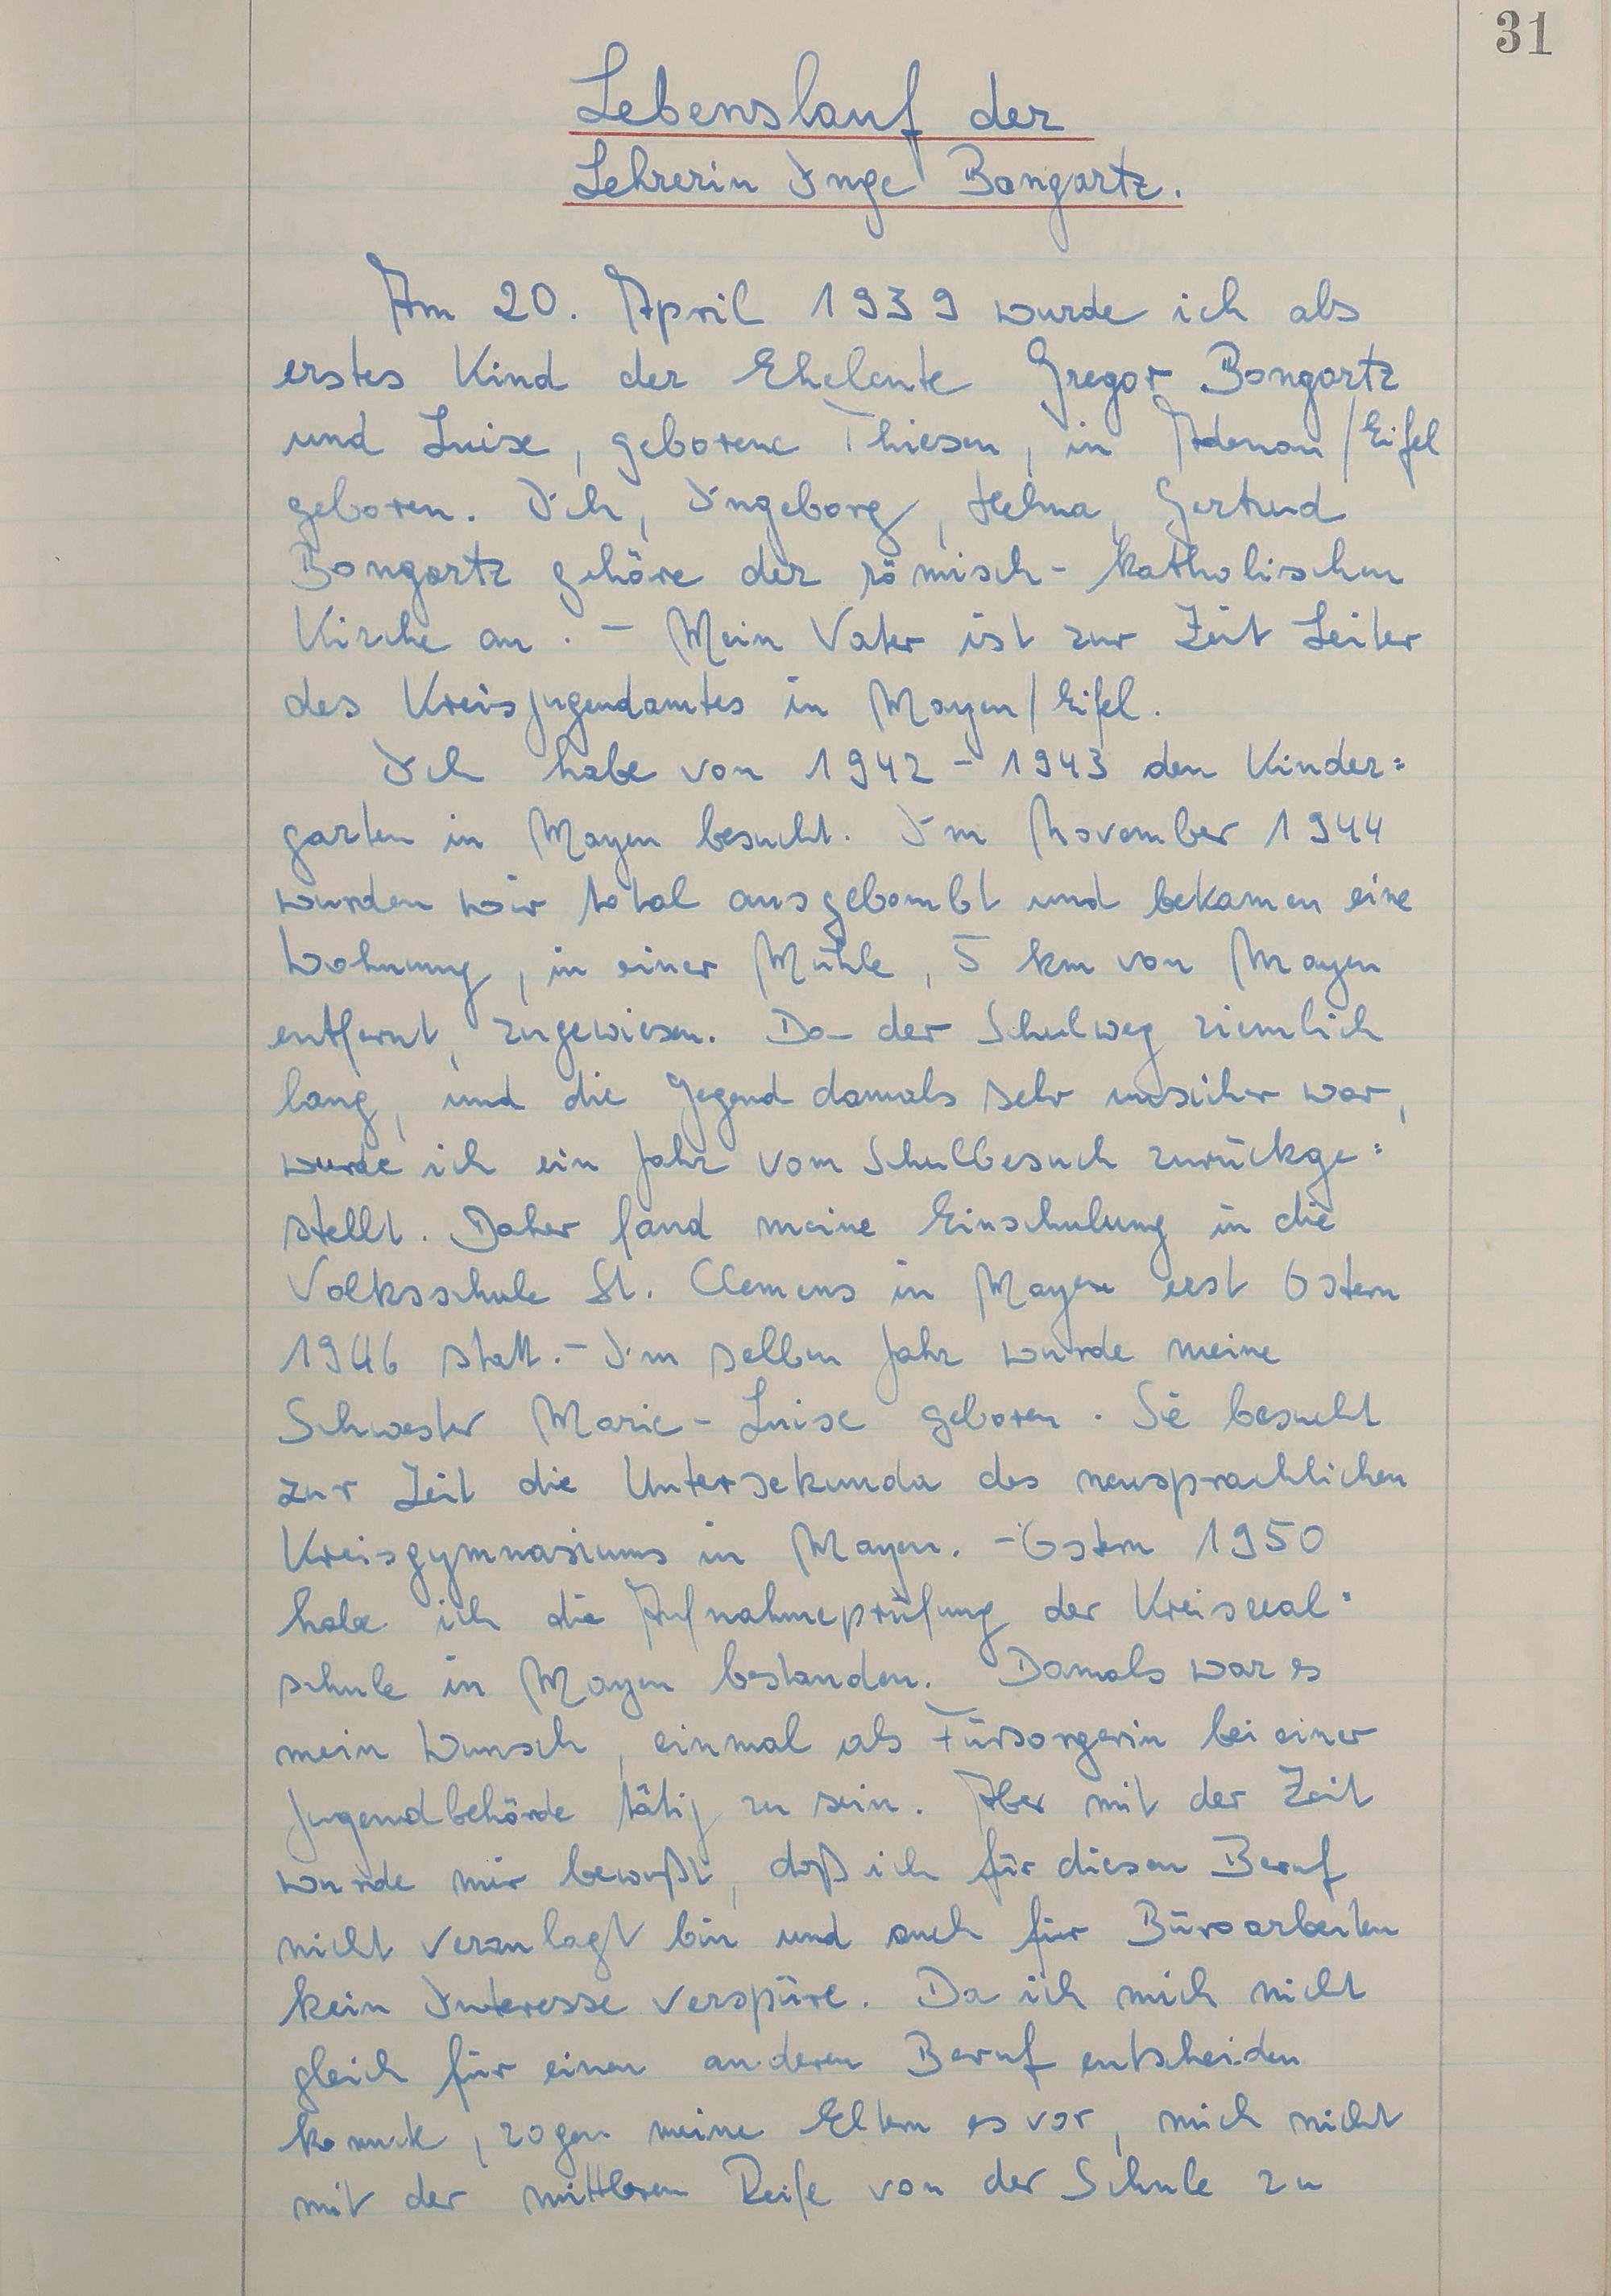 31
Lebenslauf der
Lehrerin Inge Bongartz.
Am 20. April 1939 wurde ich als
erstes Kind der Eheleute Gregor Bongartz
und Luise, geborene Thiesen, in Adenau/Eifel
geboren. Ich, Ingeborg, Helma, Gertrud
Bongartz gehöre der römisch-katholischen
Kirche an. - Mein Vater ist zur Zeit Leiter
des Kreisjugendamtes in Mayen/Eifel.
Ich habe von 1942-1943 den Kinder=
garten in Mayen besucht. Im November 1944
wurden wir total ausgebombt und bekamen eine
Wohnung, in einer Mühle, 5 km von Mayen
entfernt, zugewiesen. Da der Schulweg ziemlich
lang, und die Gegend damals sehr unsicher war,
wurde ich ein Jahr vom Schulbesuch zurückge=
stellt. Daher fand meine Einschulung in die
Volksschule St. Clemens in Mayen erst Ostern
1946 statt. - Im selben Jahr wurde meine
Schwester Marie-Luise geboren. Sie besucht
zur Zeit die Untersekunda des neusprachlichen
Kreisgymnasiums in Mayen. - Ostern 1950
habe ich die Aufnahmeprüfung der Kreisreal=
schule in Mayen bestanden. Damals war es
mein Wunsch, einmal als Fürsorgerin bei einer
Jugendbehörde tätig zu sein. Aber mit der Zeit
wurde mir bewußt, daß ich für diesen Beruf
nicht veranlagt bin und auch für Büroarbeiten
kein Interesse verspüre. Da ich mich nicht
gleich für einen anderen Beruf entscheiden
konnte, zogen meine Eltern es vor, mich nicht
mit der mittleren Reife von der Schule zu